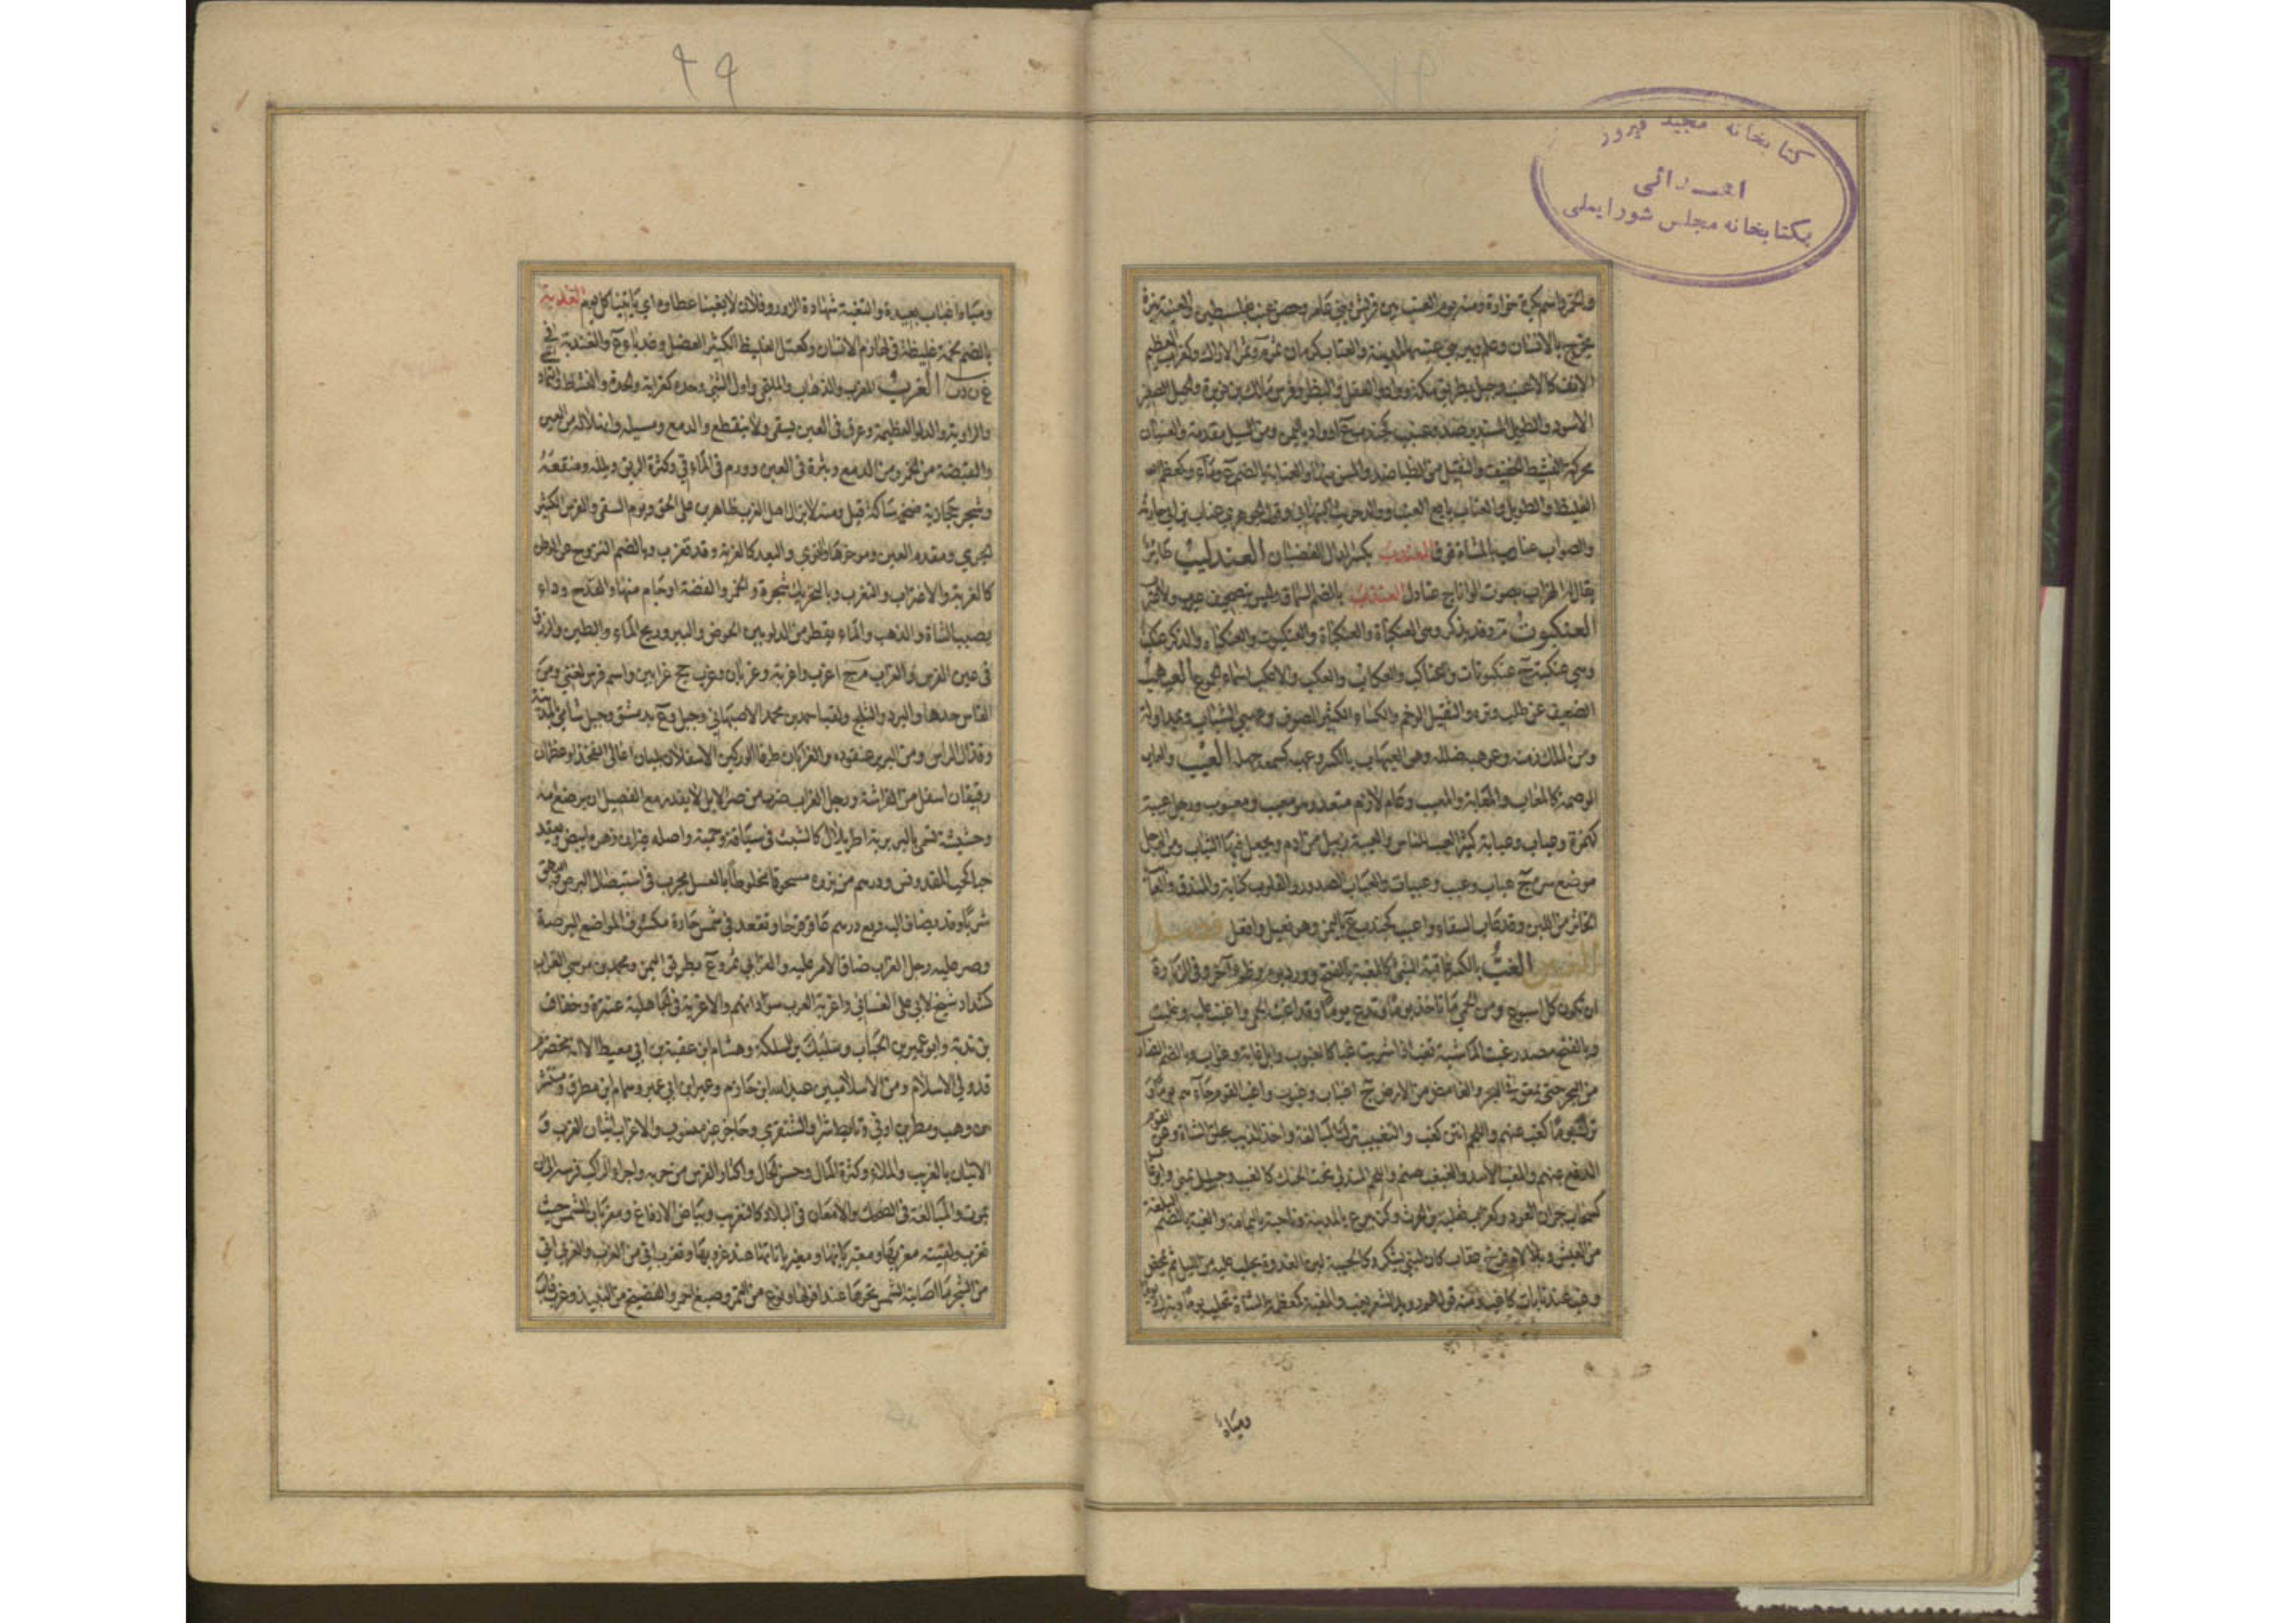 کتابخانه مجید فیروز
اهدائی
بکتابخانه مجلس شورایملی
والخمر واسم بكرة خوارة ومنه يوم العنب بين قريش وبني عامر وحصن عنب بفلسطين والعنبة بثرة
تخرج بالانسان وعلم وبير ابي عنبة بالمدينة والعناب كرمان ثمر م وثمر الاراك وكغراب العظيم
الانف كالاعنب وجبل بطريق مكة وواد والعفل او البظر وفرس مالك بن نويرة والجبل الصغير
الاسود والطويل المستدير ضد وعنبب كجندب ع او واد باليمن ومن السيل مقدمه والعنبان
محركة النشيط الخفيف والثقيل من الظباء ضد والمسن منها والعنابة بالضم ع وماء وكمعظم
الغليظ والطويل والعناب بايع العنب ووالد حريث النبهاني وقول الجوهري عناب بن ابي حارثة
والصواب عتاب بالمثناة فوق العندوب بكسر الدال الغضبان العندليب طائر
يقال له الهزار يصوت الوانا ج عنادل العنزب بالضم السماق وليس بتصحيف عبرب ولا عترب
العنكبوت م وقد يذكر وهي العنكباة والعكنباة والعنكبوه والعنكباء والذكر عنكب
وهي عنكبة ج عنكبوتات وعناكب والعكاب والعكب والاعكب اسماء الجموع العيهب
الضعيف عن طلب وتره والثقيل الوخم والكساء الكثير الصوف وعهبى الشباب ويمد اوله
ومن الملك زمنه وعوهبه ضلله وهي العيهاب بالكسر وعهبه كسمعه جهله العيب والعاب
الوصمة كالمعاب والمعابة والمعيب وعاب لازم متعد وهو معيب ومعيوب ورجل عيبة
كهمزة وعياب وعيابة كثير العيب للناس والعيبة زبيل من ادم وما يجعل فيه الثياب ومن الرجل
موضع سره ج عياب وعيب وعيبات والعياب الصدور والقلوب كناية والمندف والعائب
الخاثر من اللبن وقد عاب السقاء واعيب كجندب ع باليمن وهو فعيل او افعل فصل
الغين الغب بالكسر عاقبة الشيء كالمغبة بالفتح وورد يوم وظمء آخر وفي الزيارة
ان تكون كل اسبوع ومن الحمى ما تاخذ يوما وتدع يوما وقد اغبته الحمى واغبت عليه وغبت
وبالفتح مصدر غبت الماشية تغب اذا شربت غبا كالغبوب وابل غابة وغواب وبالضم الضارب
من البحر حتى يمعن في البر والغامض من الارض ج اغباب وغبوب واغب القوم جاءهم يوما و
ترك يوما كغب عنهم واللحم انتن كغب والتغبيب ترك المبالغة واخذ الذئب بحلق الشاة وعن القوم
الدفع عنهم والمغب الاسد والغبغب صنم واللحم المتدلي تحت الحنك كالغبب وجبيل بمنى وابو غباب
كسحاب جران العود وكغراب ثعلبة بن الحرث وكزبير ع بالمدينة وناحية باليمامة والغبة بالضم البلغة
من العيش وبلا لام فرخ عقاب كان لبني يشكر وكالحبيبة لبن الغدوة يحلب عليه من الليل ثم يمخض
وغب عندنا بات كاغب ومنه قولهم رويد الشعر يغب والمغببة كمعظمة الشاة تحلب يوما وتترك يوما
ومياه
۹۹
ومياه اغباب بعيدة والتغبة شهادة الزور وفلان لا يغبنا عطاؤه اي ياتينا كل يوم الغدبة
بالضم لحمة غليظة في لهازم الانسان وكعتل الغليظ الكثير العضل وغدباء ع والغندبة في
غ ن د ب الغرب المغرب والذهاب والتنحي واول الشيء وحده كغرابه والحدة والنشاط والتمادي
والراوية والدلو العظيمة وعرق في العين يسقي ولا ينقطع والدمع ومسيله او انهلاله من العين
والفيضة من الخمر ومن الدمع وبثرة في العين وورم في المآقي وكثرة الريق وبلله ومنقعه
وشجرة حجازية ضخمة شاكة قيل ومنه لا يزال اهل الغرب ظاهرين على الحق ويوم السقي والفرس الكثير
الجري ومقدم العين ومؤخرها والنوى والبعد كالغربة وقد تغرب وبالضم النزوح عن الوطن
كالغربة والاغتراب والتغرب وبالتحريك شجرة والخمر والفضة او جام منها والقدح وداء
يصيب الشاة والذهب والماء يقطر من الدلو بين الحوض والبير وريح الماء والطين والزرق
في عين الفرس والغراب م ج اغرب واغربة وغربان وغرب جج غرابين واسم فرس لغني ومن
الفاس حدها والبرد والثلج ولقب احمد بن محمد الاصبهاني وجبل وع بدمشق وجبل شامي المدينة
وقذال الراس ومن البرير عنقوده والغرابان طرفا الوركين الاسفلان يليان اعالي الفخذ او عظمان
رقيقان اسفل من الفراشة ورجل الغراب ضرب من صر الابل لا يقدر مع الفصيل ان يرضع امه
وحشيشة تسمى بالبربرية اطريلال كالشبث في ساقه وجمته واصله غير ان زهره ابيض ويعقد
حبا كحب المقدونس ودرهم من بزره مسحوقا مخلوطا بالعسل مجرب في استيصال البرص والبهق
شربا وقد يضاف اليه ربع درهم عاقرقرحا ويقعد في شمس حارة مكشوف المواضع البرصة
وصر عليه رجل الغراب ضاق الامر عليه والغرابي ثمر وع بطريق اليمن ومحمد بن موسى الغراب
كشداد شيخ لابي علي الغساني واغربة العرب سودانهم والاغربة في الجاهلية عنترة وخفاف
بن ندبة وابو عمير بن الحباب وسليك بن السلكة وهشام ابن عقبة بن ابي معيط الا انه مخضرم
قد ولي الاسلام ومن الاسلاميين عبد الله ابن خازم وعمير ابن ابي عمير وهمام ابن مطرف ومنتشر
بن وهب ومطر بن اوفى وتابط شرا والشنفرى وحاجز غير منسوب والاغراب اتيان الغرب و
الاتيان بالغريب والملء وكثرة المال وحسن الحال واكثار الفرس من جريه واجراء الراكب فرسه الى ان
يموت والمبالغة في الضحك والامعان في البلاد كالتغريب وبياض الارفاغ ومغربان الشمس حيث
تغرب ولقيته مغربها ومغيربانها ومغيرباناتها عند غروبها وتغرب اتى من الغرب والغربي
من الشجر ما اصابته الشمس بحرها عند افولها ونوع من التمر وصبغ احمر والفضيخ من النبيذ وغرب غاب